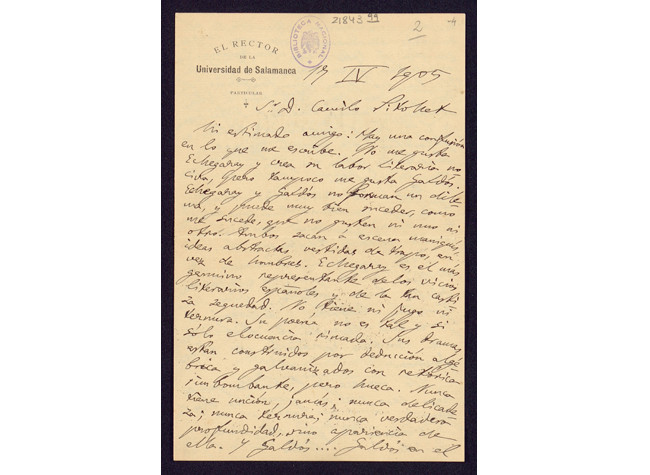 21843 99
2
BIBLIOTECA NACIONAL
EL RECTOR
DE LA
Universidad de Salamanca
PARTICULAR
IV 1905
Sr. D. Camilo Pitollet
Mi estimado amigo: Hay una confusión
en lo que me escribe. No me gusta
Echegaray y creo su labor literaria no
civa, pero tampoco me gusta Galdós.
Echegaray y Galdós no forman un dile
ma, y puede muy bien suceder, como
me sucede, que no gusten ni uno ni
otro. Ambos sacan á escena maniquíes,
ideas abstractas vestidas de trapos, en
vez de hombres. Echegaray es el más
genuino representante de los vicios
literarios españoles y de la tan casti
za sequedad. No tiene ni jugo ni
ternura. Su poesía no es tal y sí
sólo elocuencia rimada. Sus dramas
están construidos por deducción algé
brica y galvanizados con retórica
rimbombante, pero hueca. Nunca
tiene unción, jamás; nunca delicade
za; nunca ternura; nunca verdadera
profundidad, sino apariencia de
ella. Y Galdós.... Galdós en el